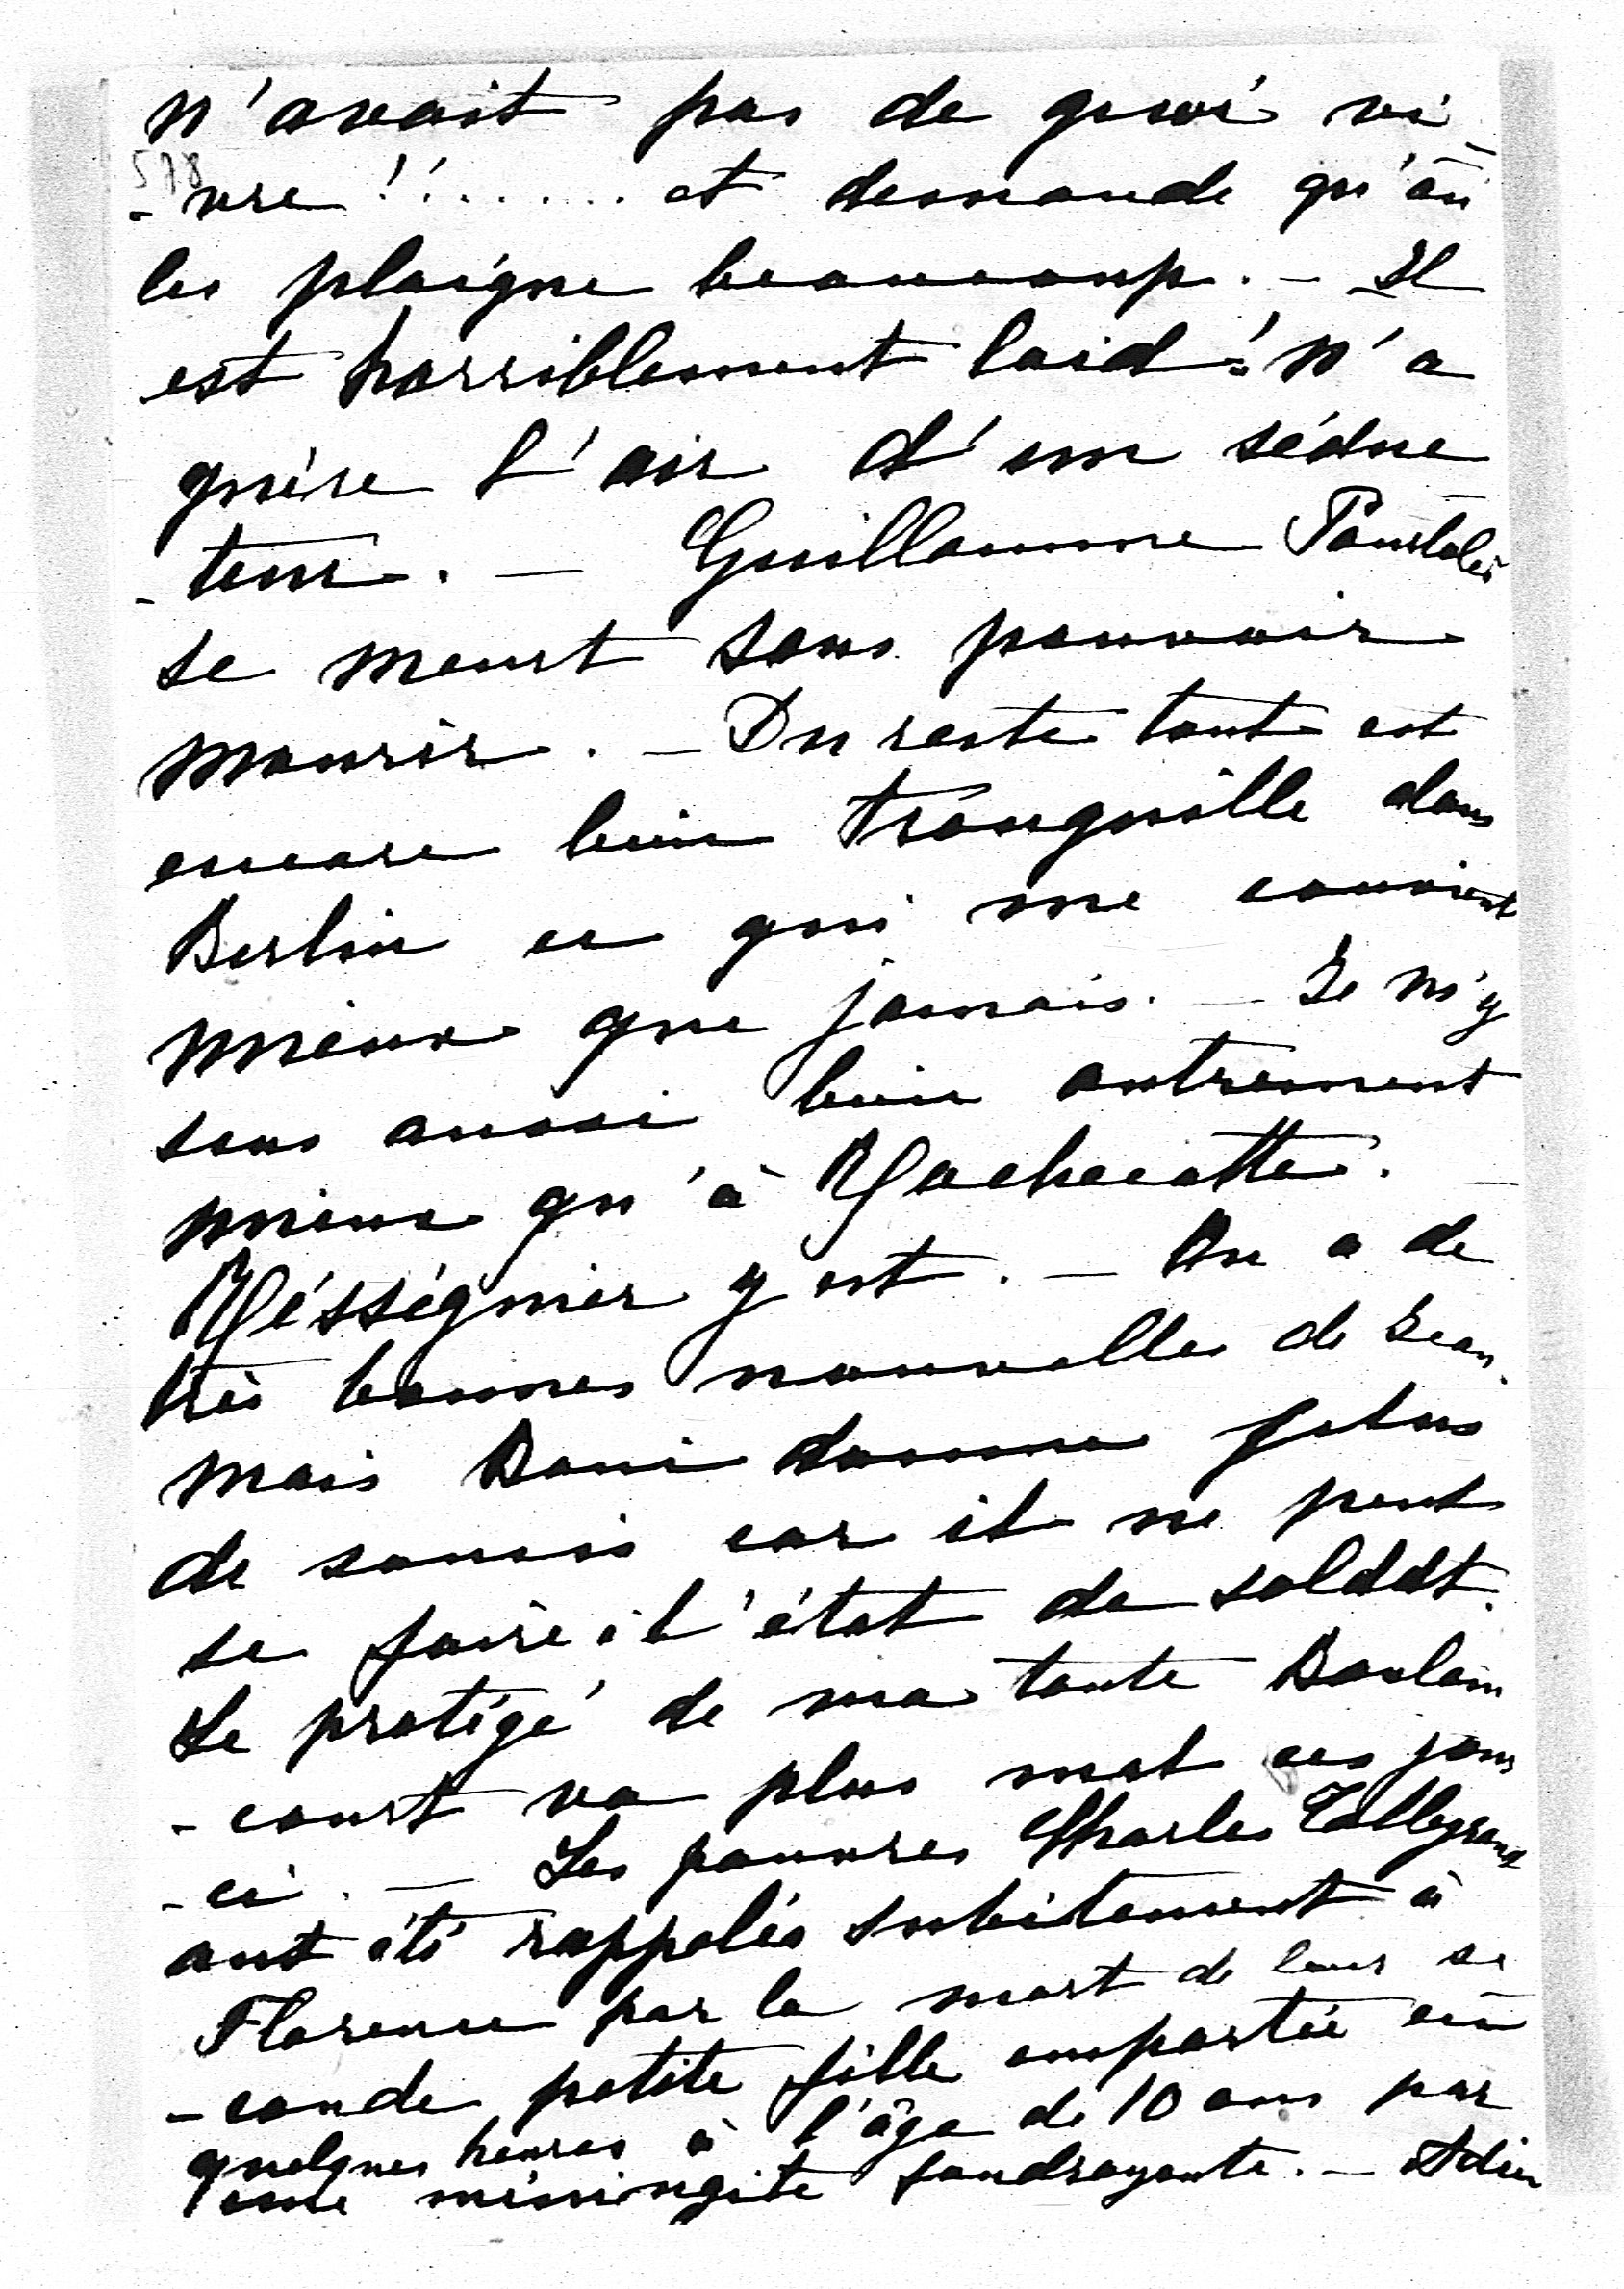 n'avait pas de quoi vi-
578
-vre !!....... et demande qu'on
les plaigne beaucoup. – Il
est horriblement laid! n'a
guère l'air d'un séduc
-teur. – Guillaume Pourtalès
se meurt sans pouvoir
mourir. – Du reste tout est
encore bien tranquille dans
Berlin ce qui me convient
mieux que jamais. – Je m'y
sens aussi bien autrement
mieux qu'à Rochecotte. –
Rességuier y est. – On a de
très bonnes nouvelles de Jean.
mais Boni donne plus
de soucis car il ne peut
se faire à l'état de soldat.
Le protégé de ma tante Boulain
-court va plus mal ces jours
-ci. – Les pauvres Charles Talleyrand
ont été rappelés subitement à
Florence par la mort de leur se
-conde petite fille emportée en
quelques heures à l'âge de 10 ans par
une méningite foudroyante. – Adieu